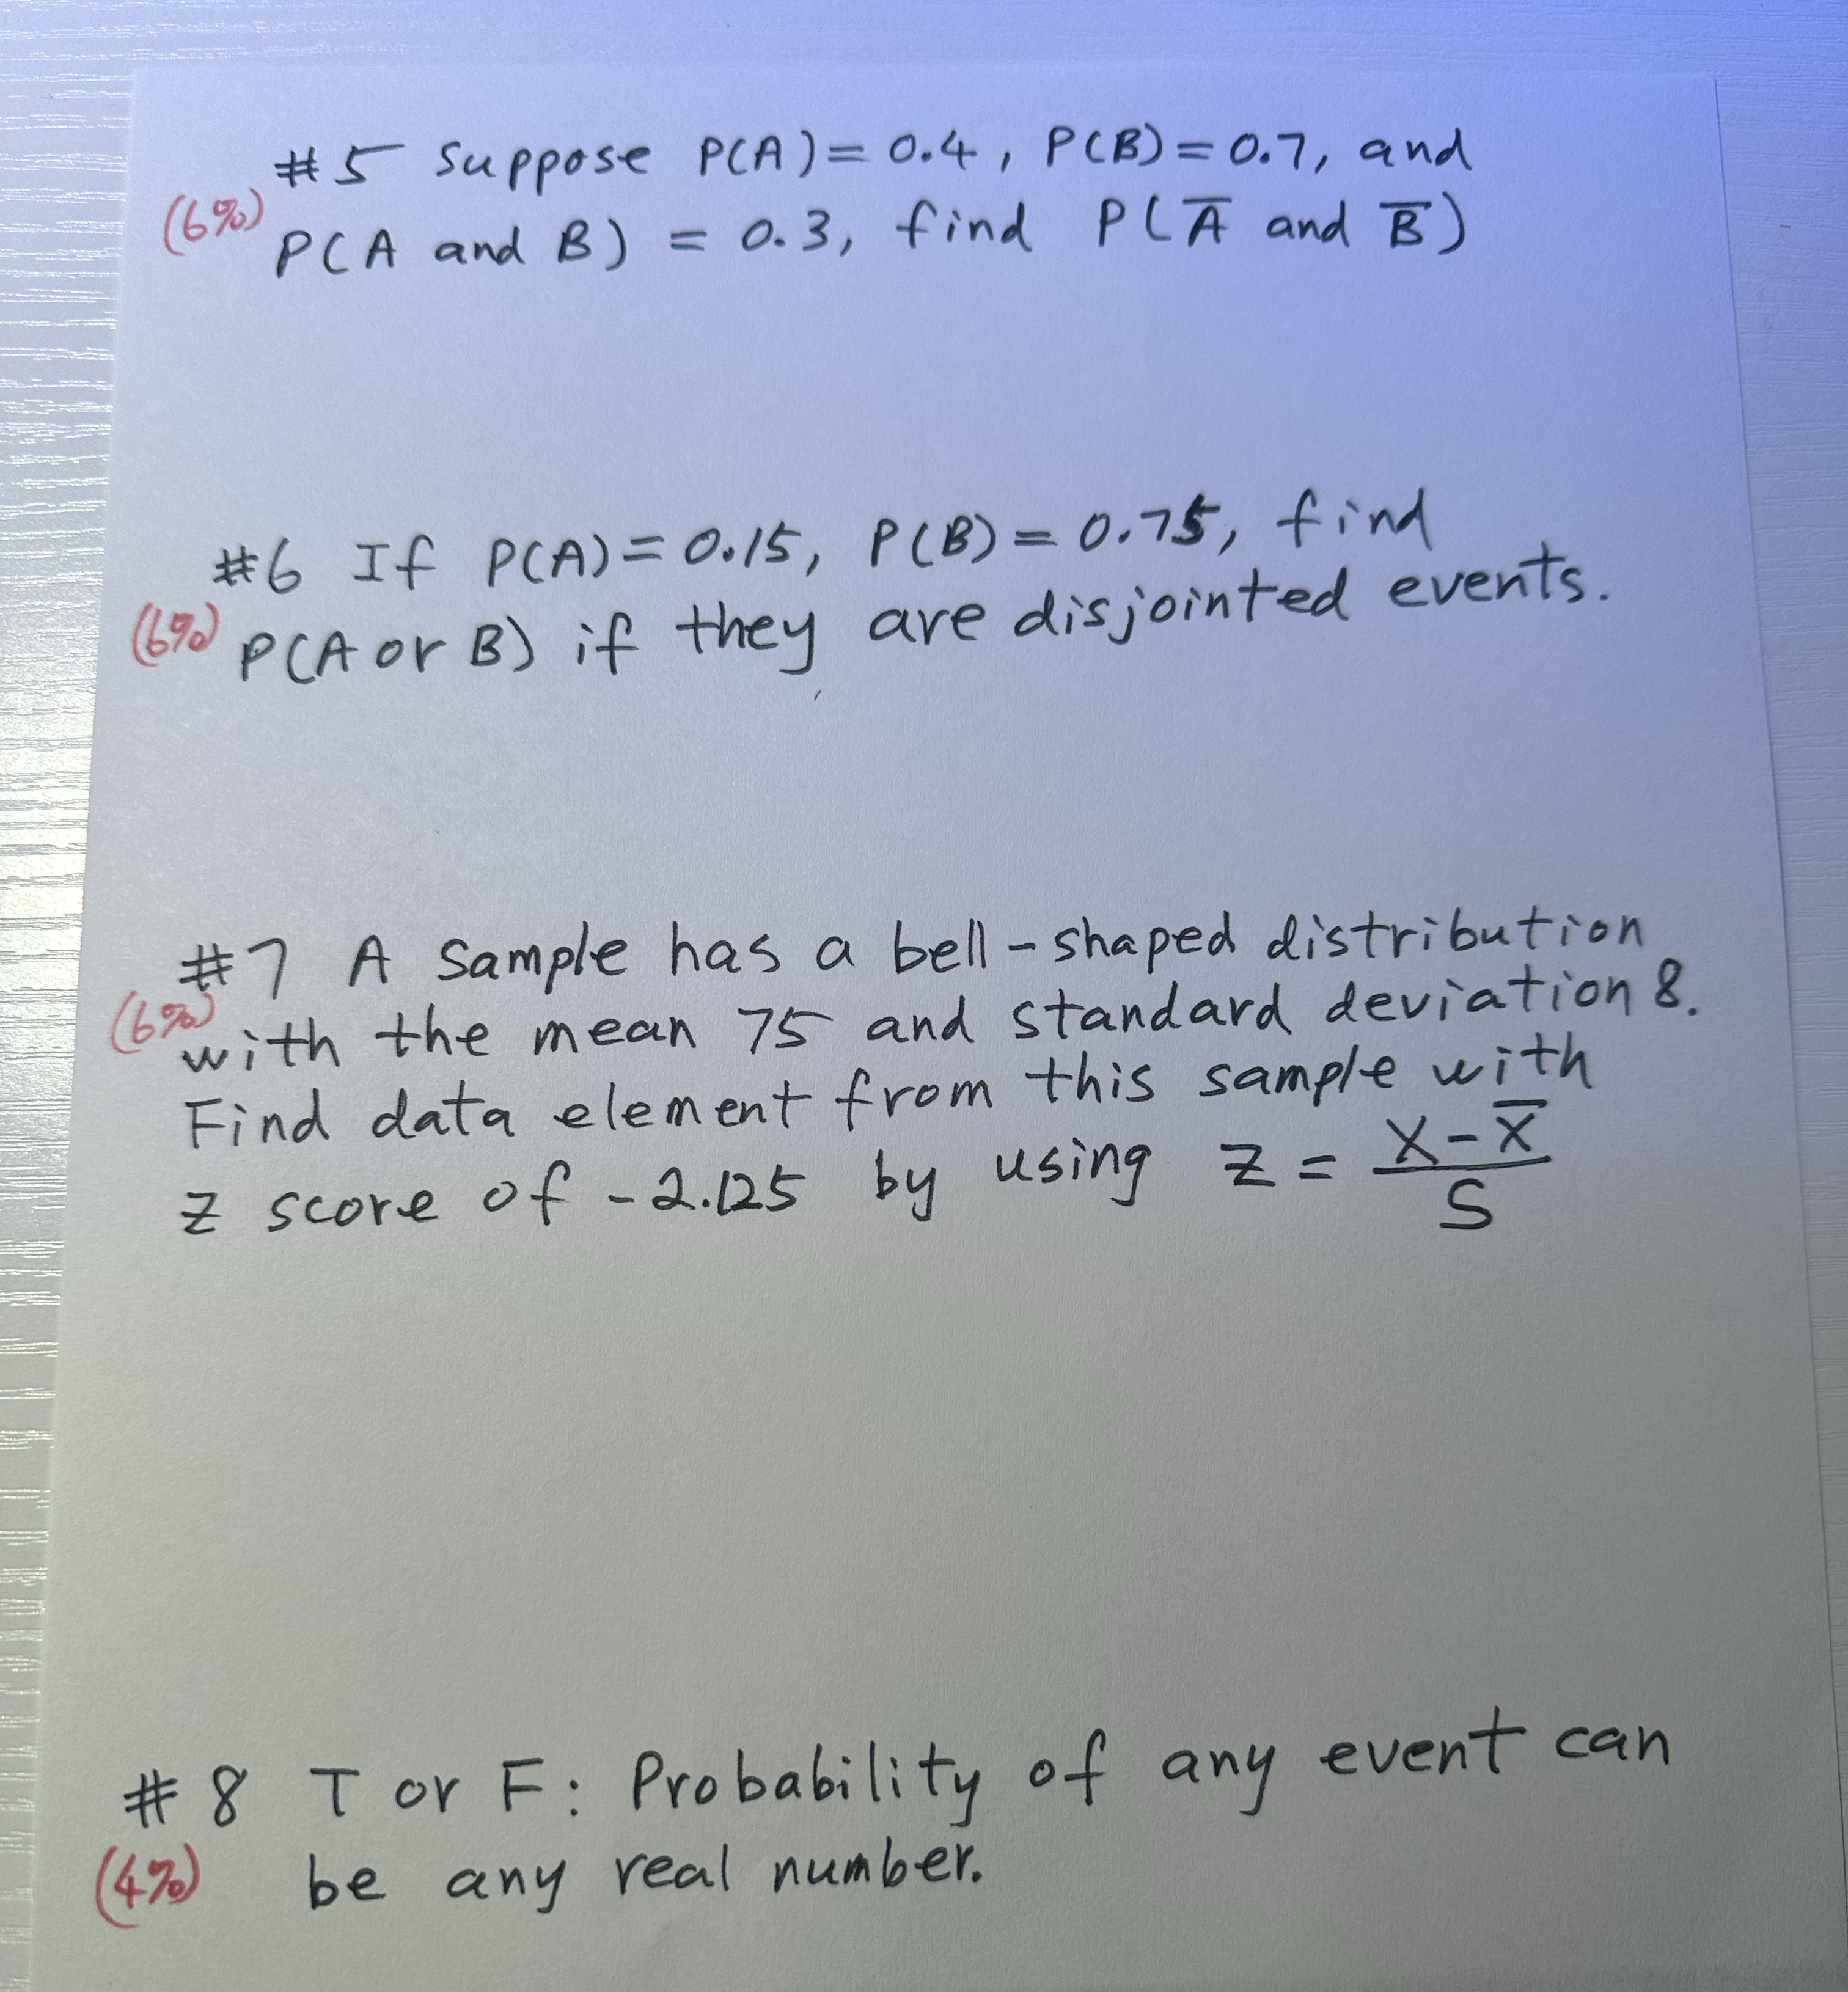 #5 Suppose P(A) = 0.4, P(B) = 0.7, and
(6%) P(A and B) = 0.3, find P(A̅ and B̅)
#6 If P(A) = 0.15, P(B) = 0.75, find
(6%) P(A or B) if they are disjointed events.
#7 A sample has a bell-shaped distribution
(6%) with the mean 75 and standard deviation 8.
Find data element from this sample with
z score of -2.125 by using z = (x - x̅)/S
#8 T or F: Probability of any event can
(4%) be any real number.